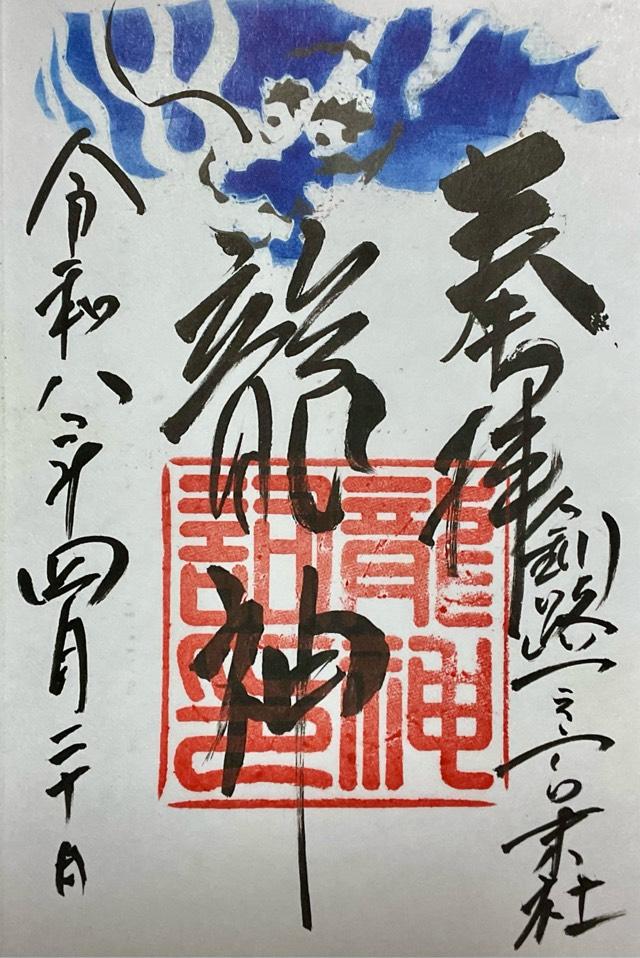 奉拝
釧路一之宮末社
龍神
龍神
記印
令和八年四月二十日